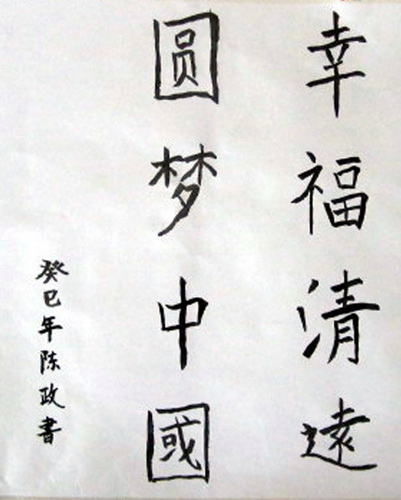 幸福清遠
圆梦中國
癸巳年陈政書